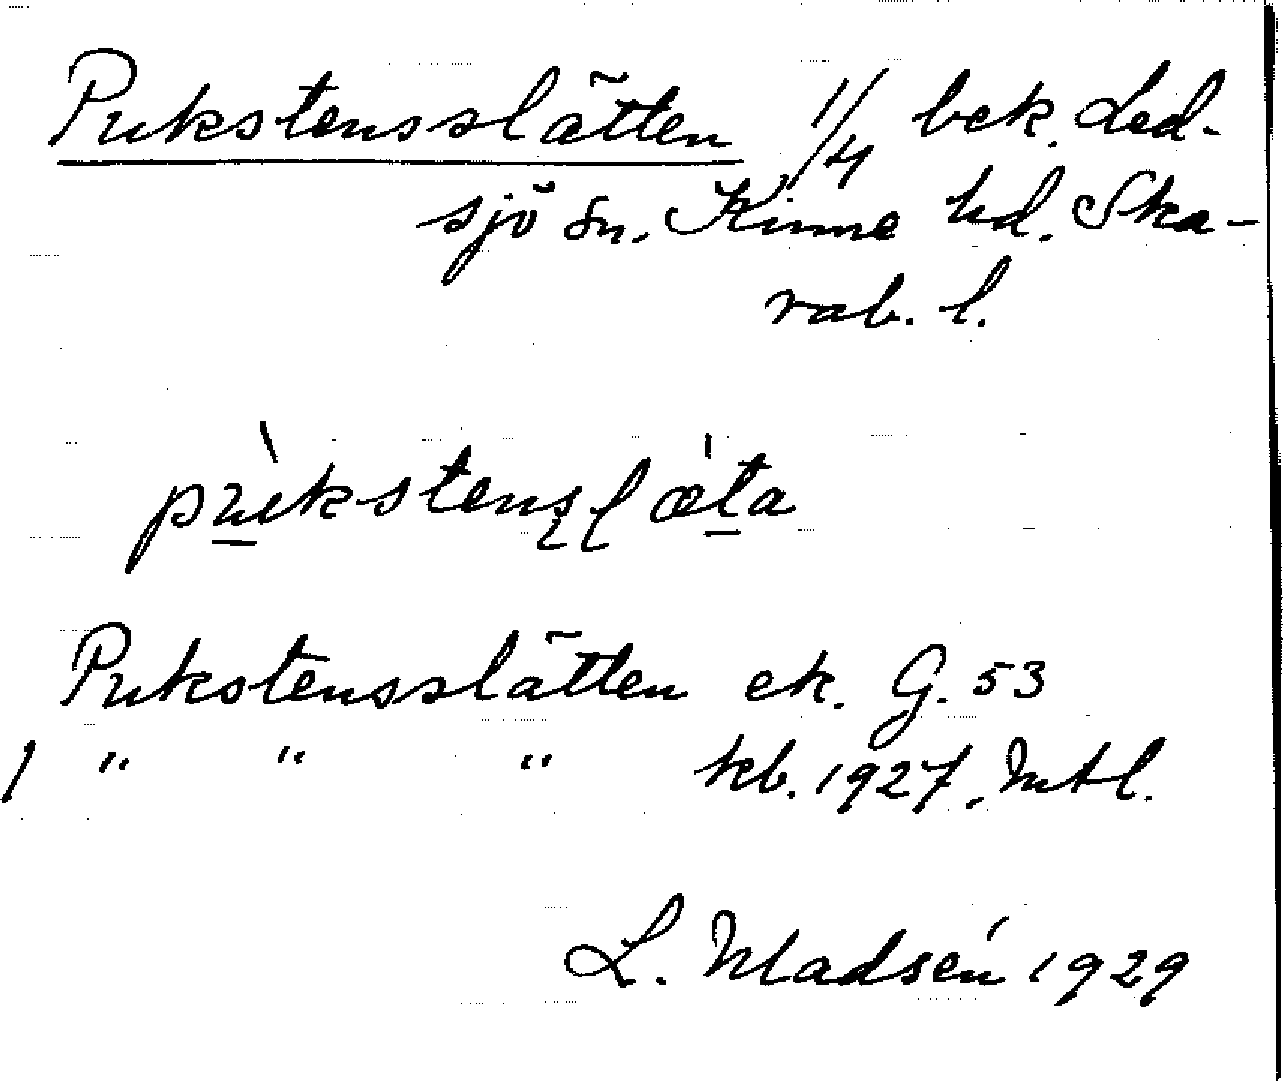 Pukstensslätten 1/4 bek. Led-
sjö sn. Kinne hd. Ska-
rab. l.
pukstensl æta
Pukstensslätten ek. G. 53
/ " " " kb. 1927, Mtl.
L. Madsén 1929